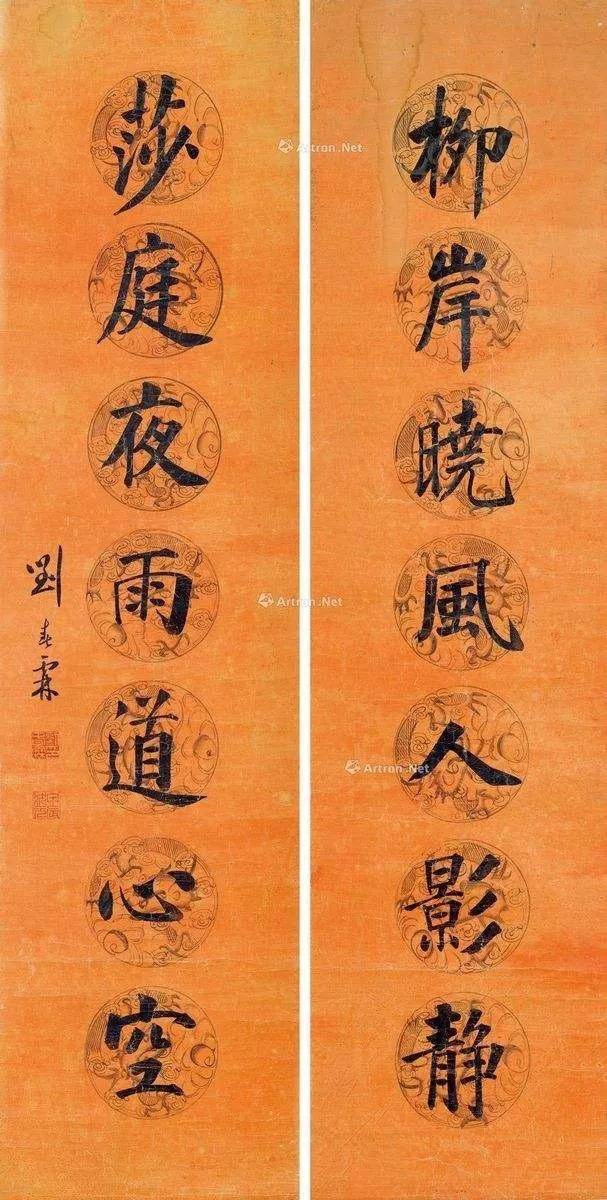 柳岸曉風人影靜
莎庭夜雨道心空
劉春霖
Artron.Net
Artron.Net
Artron.Net